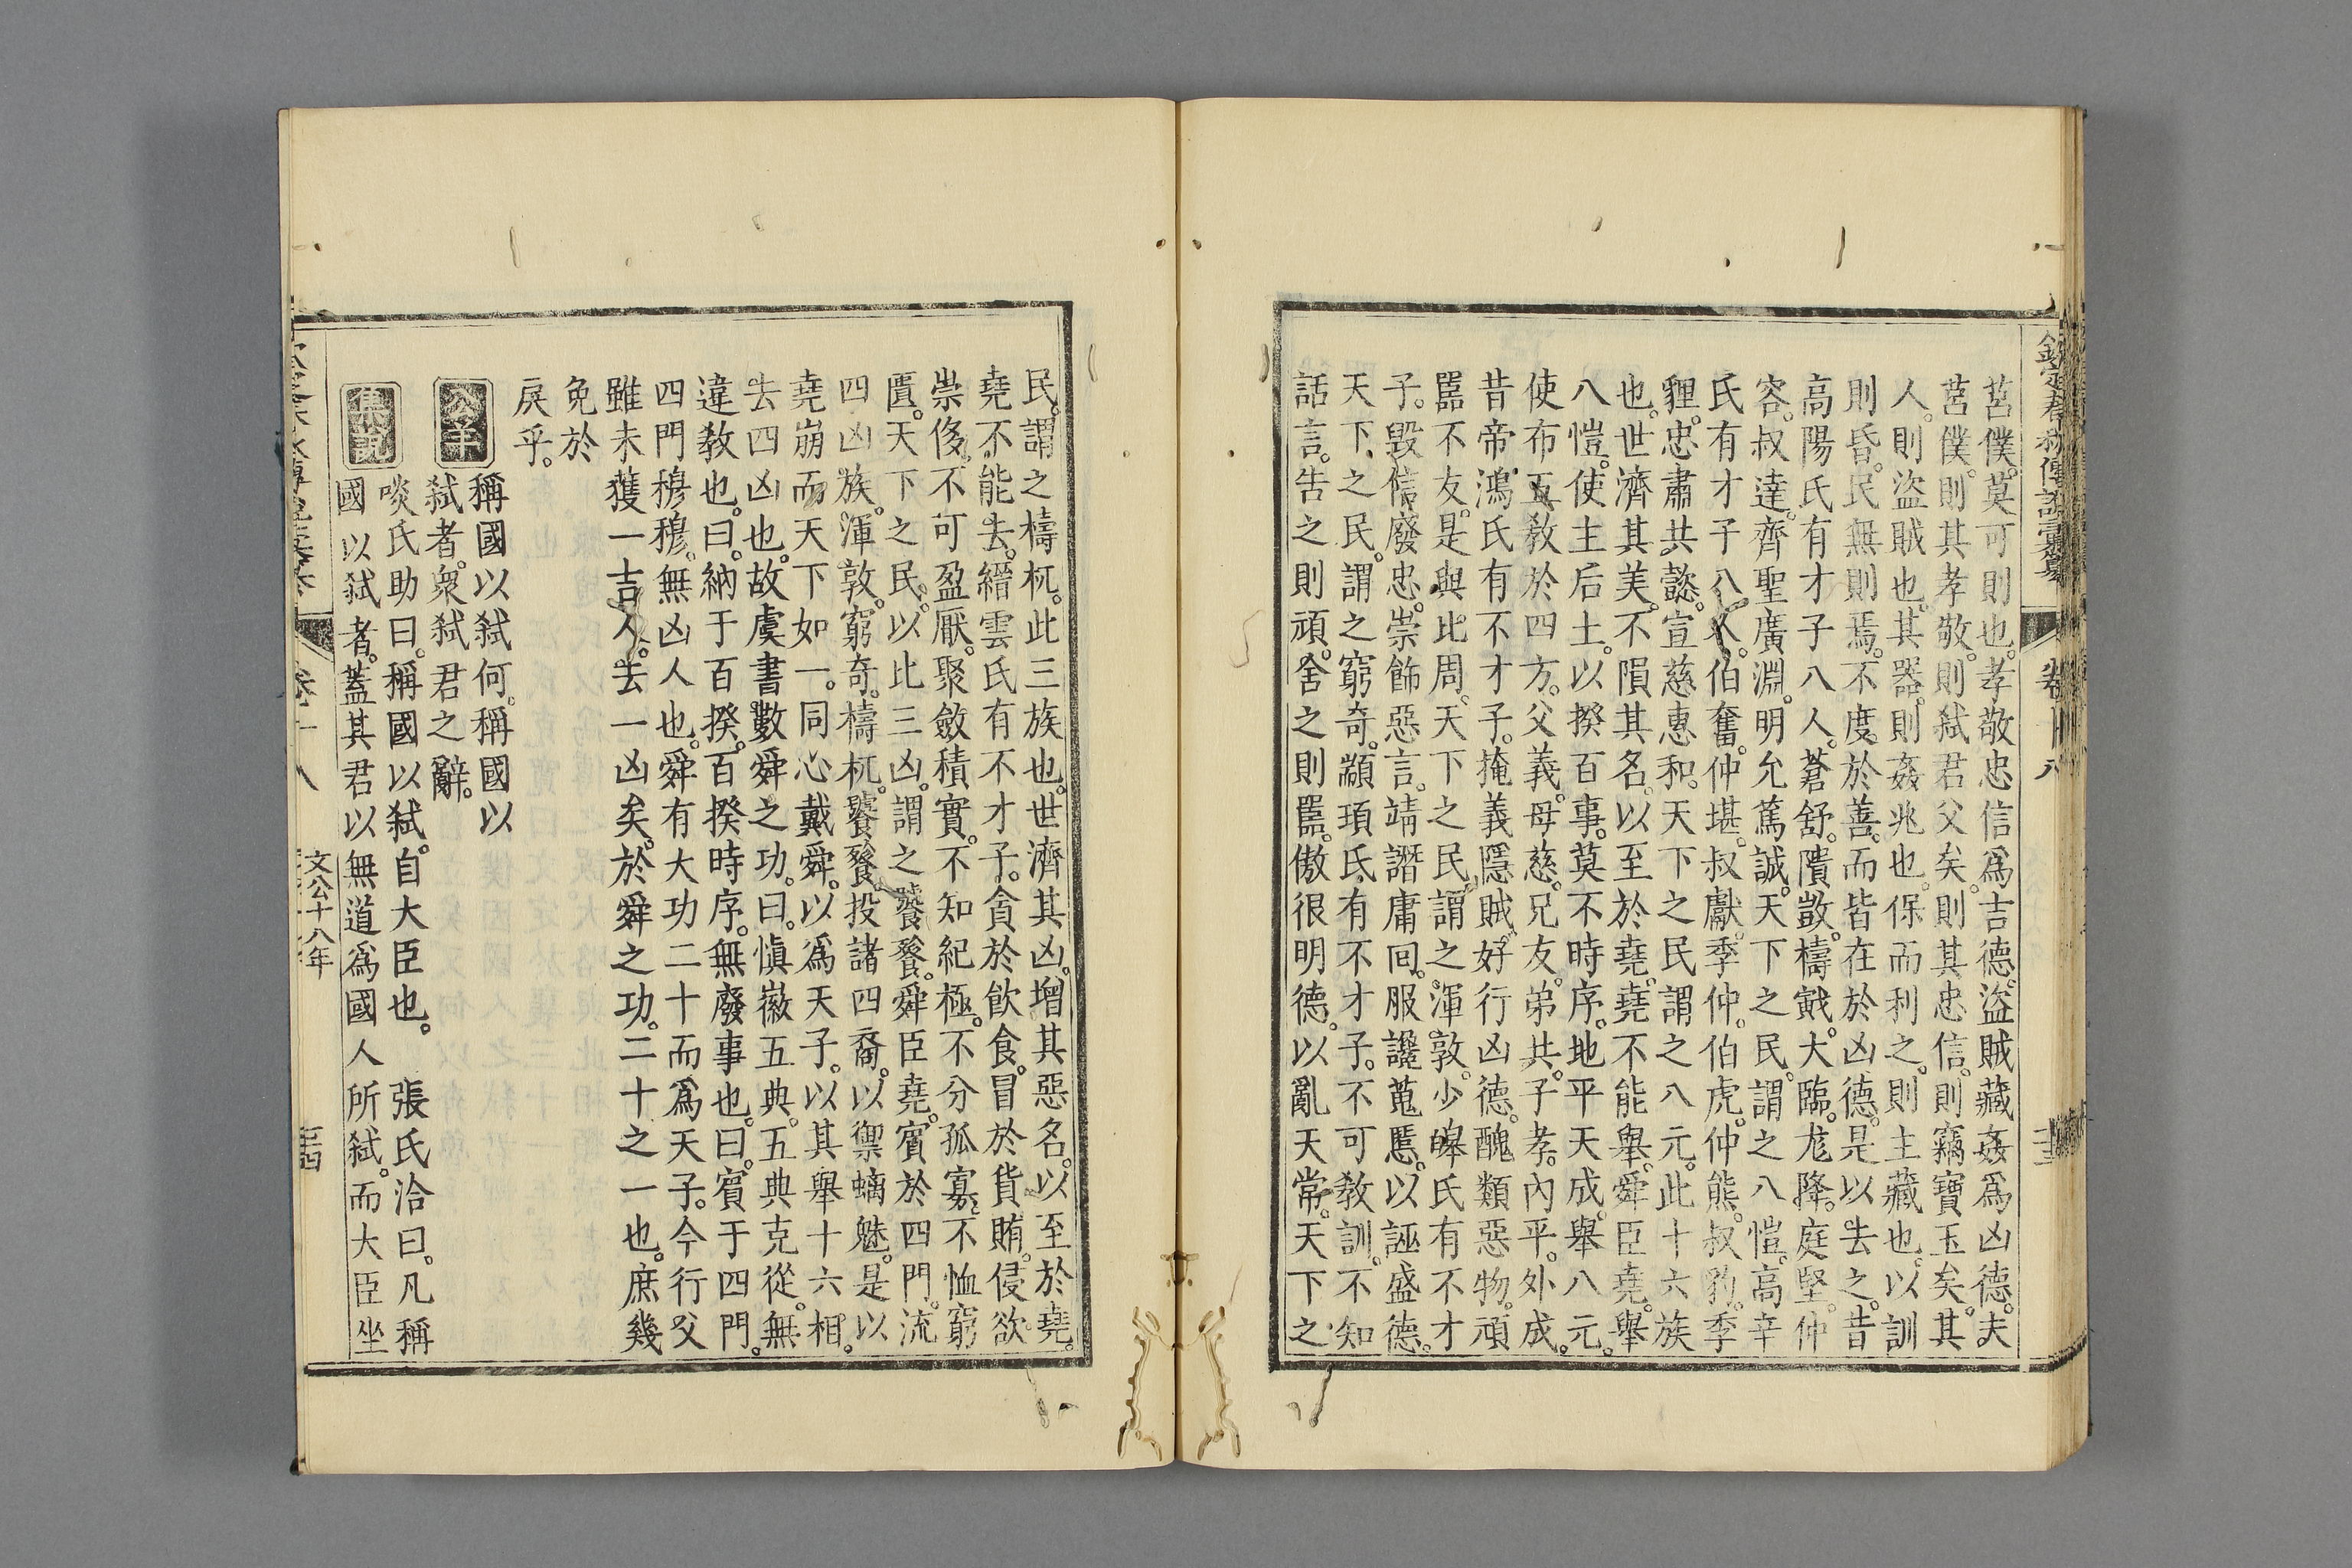 莒僕莫可則也。孝敬忠信爲吉德。盜賊藏姦爲凶德。夫
莒僕。則其孝敬。則弑君父矣。則其忠信。則竊寶玉矣。其
人。則盜賊也。其器。則姦兆也。保而利之。則主藏也。以訓
則昏。民無則焉。不度於善。而皆在於凶德。是以去之。昔
高陽氏有才子八人。蒼舒。隤敳。檮戭。大臨。尨降。庭堅。仲
容。叔達。齊聖廣淵。明允篤誠。天下之民。謂之八愷。高辛
氏有才子八人。伯奮。仲堪。叔獻。季仲。伯虎。仲熊。叔豹。季
貍。忠肅共懿。宣慈惠和。天下之民謂之八元。此十六族
也。世濟其美。不隕其名。以至於堯。堯不能舉。舜臣堯。舉
八愷。使主后土。以揆百事。莫不時序。地平天成。舉八元。
使布五敎於四方。父義。母慈。兄友。弟共。子孝。內平。外成。
昔帝鴻氏有不才子。掩義隱賊。好行凶德。醜類惡物。頑
嚚不友。是與比周。天下之民。謂之渾敦。少皞氏有不才
子。毀信廢忠。崇飾惡言。靖譖庸回。服讒蒐慝。以誣盛德。
天下之民。謂之窮奇。顓頊氏有不才子。不可敎訓。不知
話言。告之則頑。舍之則嚚。傲很明德。以亂天常。天下之
欽定春秋傳說彙纂
卷十八
民。謂之檮杌。此三族也。世濟其凶。增其惡名。以至於堯。
堯不能去。縉雲氏有不才子。貪於飲食。冒於貨賄。侵欲
崇侈。不可盈厭。聚斂積實。不知紀極。不分孤寡。不恤窮
匱。天下之民。以比三凶。謂之饕餮。舜臣堯。賓於四門。流
四凶族。渾敦。窮奇。檮杌。饕餮。投諸四裔。以禦螭魅。是以
堯崩而天下如一。同心戴舜。以爲天子。以其舉十六相。
去四凶也。故虞書數舜之功。曰。愼徽五典。五典克從。無
違敎也。曰。納于百揆。百揆時序。無廢事也。曰。賓于四門。
四門穆穆。無凶人也。舜有大功二十而爲天子。今行父
雖未獲一吉人。去一凶矣。於舜之功。二十之一也。庶幾
免於
戾乎。
公羊 稱國以弑何。稱國以
弑者。衆弑君之辭。
集說 啖氏助曰。稱國以弑。自大臣也。 張氏洽曰。凡稱
國以弑者。蓋其君以無道爲國人所弑。而大臣坐
卷十八
文公十八年